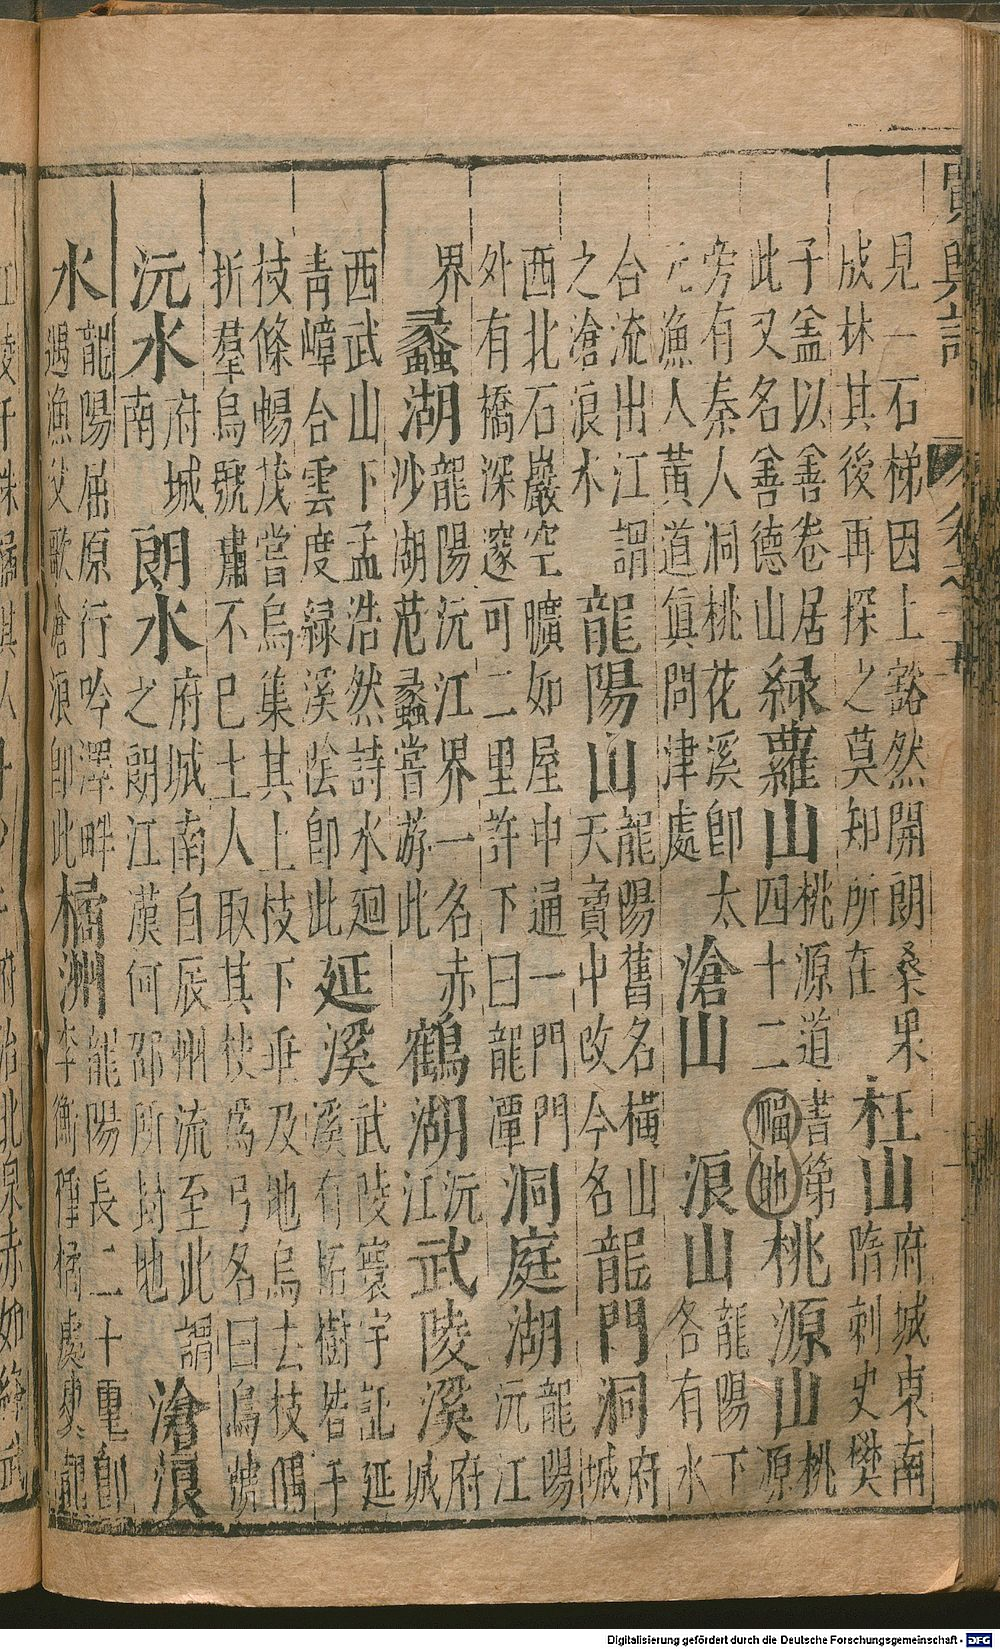 廣輿記
見一石梯因上豁然開朗桑果
成林其後再探之莫知所在
枉山
府城東南
隋刺史樊
子盖以善卷居
此又名善德山
綠蘿山
桃源道書第
四十二福地
桃源山
桃
源
旁有秦人洞桃花溪即太
元漁人黃道真問津處
滄山
浪山
龍陽下
各有水
合流出江謂
之滄浪水
龍陽山
龍陽舊名橫山
天寶中改今名
龍門洞
府
城
西北石巖空曠如屋中通一門門
外有橋深邃可二里許下曰龍潭
洞庭湖
龍陽
沅江
界
蠡湖
龍陽沅江界一名赤
沙湖范蠡嘗游此
鶴湖
沅
江
武陵溪
府
城
西武山下孟浩然詩水迴
青嶂合雲度綠溪陰即此
延溪
武陵寰宇記延
溪有拓樹枯手
枝條暢茂嘗烏集其上枝下垂及地烏去枝偶
折羣烏號嘯不已土人取其枝爲弓名曰烏號
沅水
府城
南
朗水
府城南自辰州流至此謂
之朗江漢何邵所封地
滄浪
水
龍陽屈原行吟澤畔
遇漁父歌滄浪即此
橘洲
龍陽長二十里即
李衡種橘處
Digitalisierung gefördert durch die Deutsche Forschungsgemeinschaft - DFG